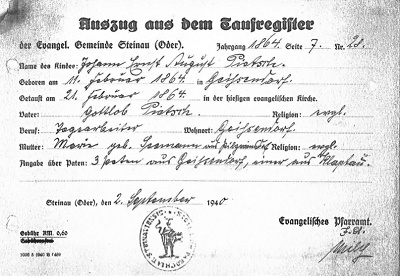 Auszug aus dem Taufregister
der Evangel. Gemeinde Steinau (Oder). Jahrgang 1864. Seite 7. Nr. 28.
Name des Kindes: Johann Ernst August Pietsch.
Geboren am 11. Februar 1864. in Geissendorf.
Getauft am 21. Februar 1864. in der hiesigen evangelischen Kirche.
Vater: Gottlob Pietsch. Religion: evgl.
Beruf: Tagearbeiter Wohnort: Geissendorf.
Mutter: Marie geb. Seemann aus Religion: evgl.
Angabe über Paten: 3 Paten aus Geissendorf, einer aus Klaptau.
Steinau (Oder), den 2. September 1940
Evangelisches Pfarramt.
Gebühr RM. 0,60